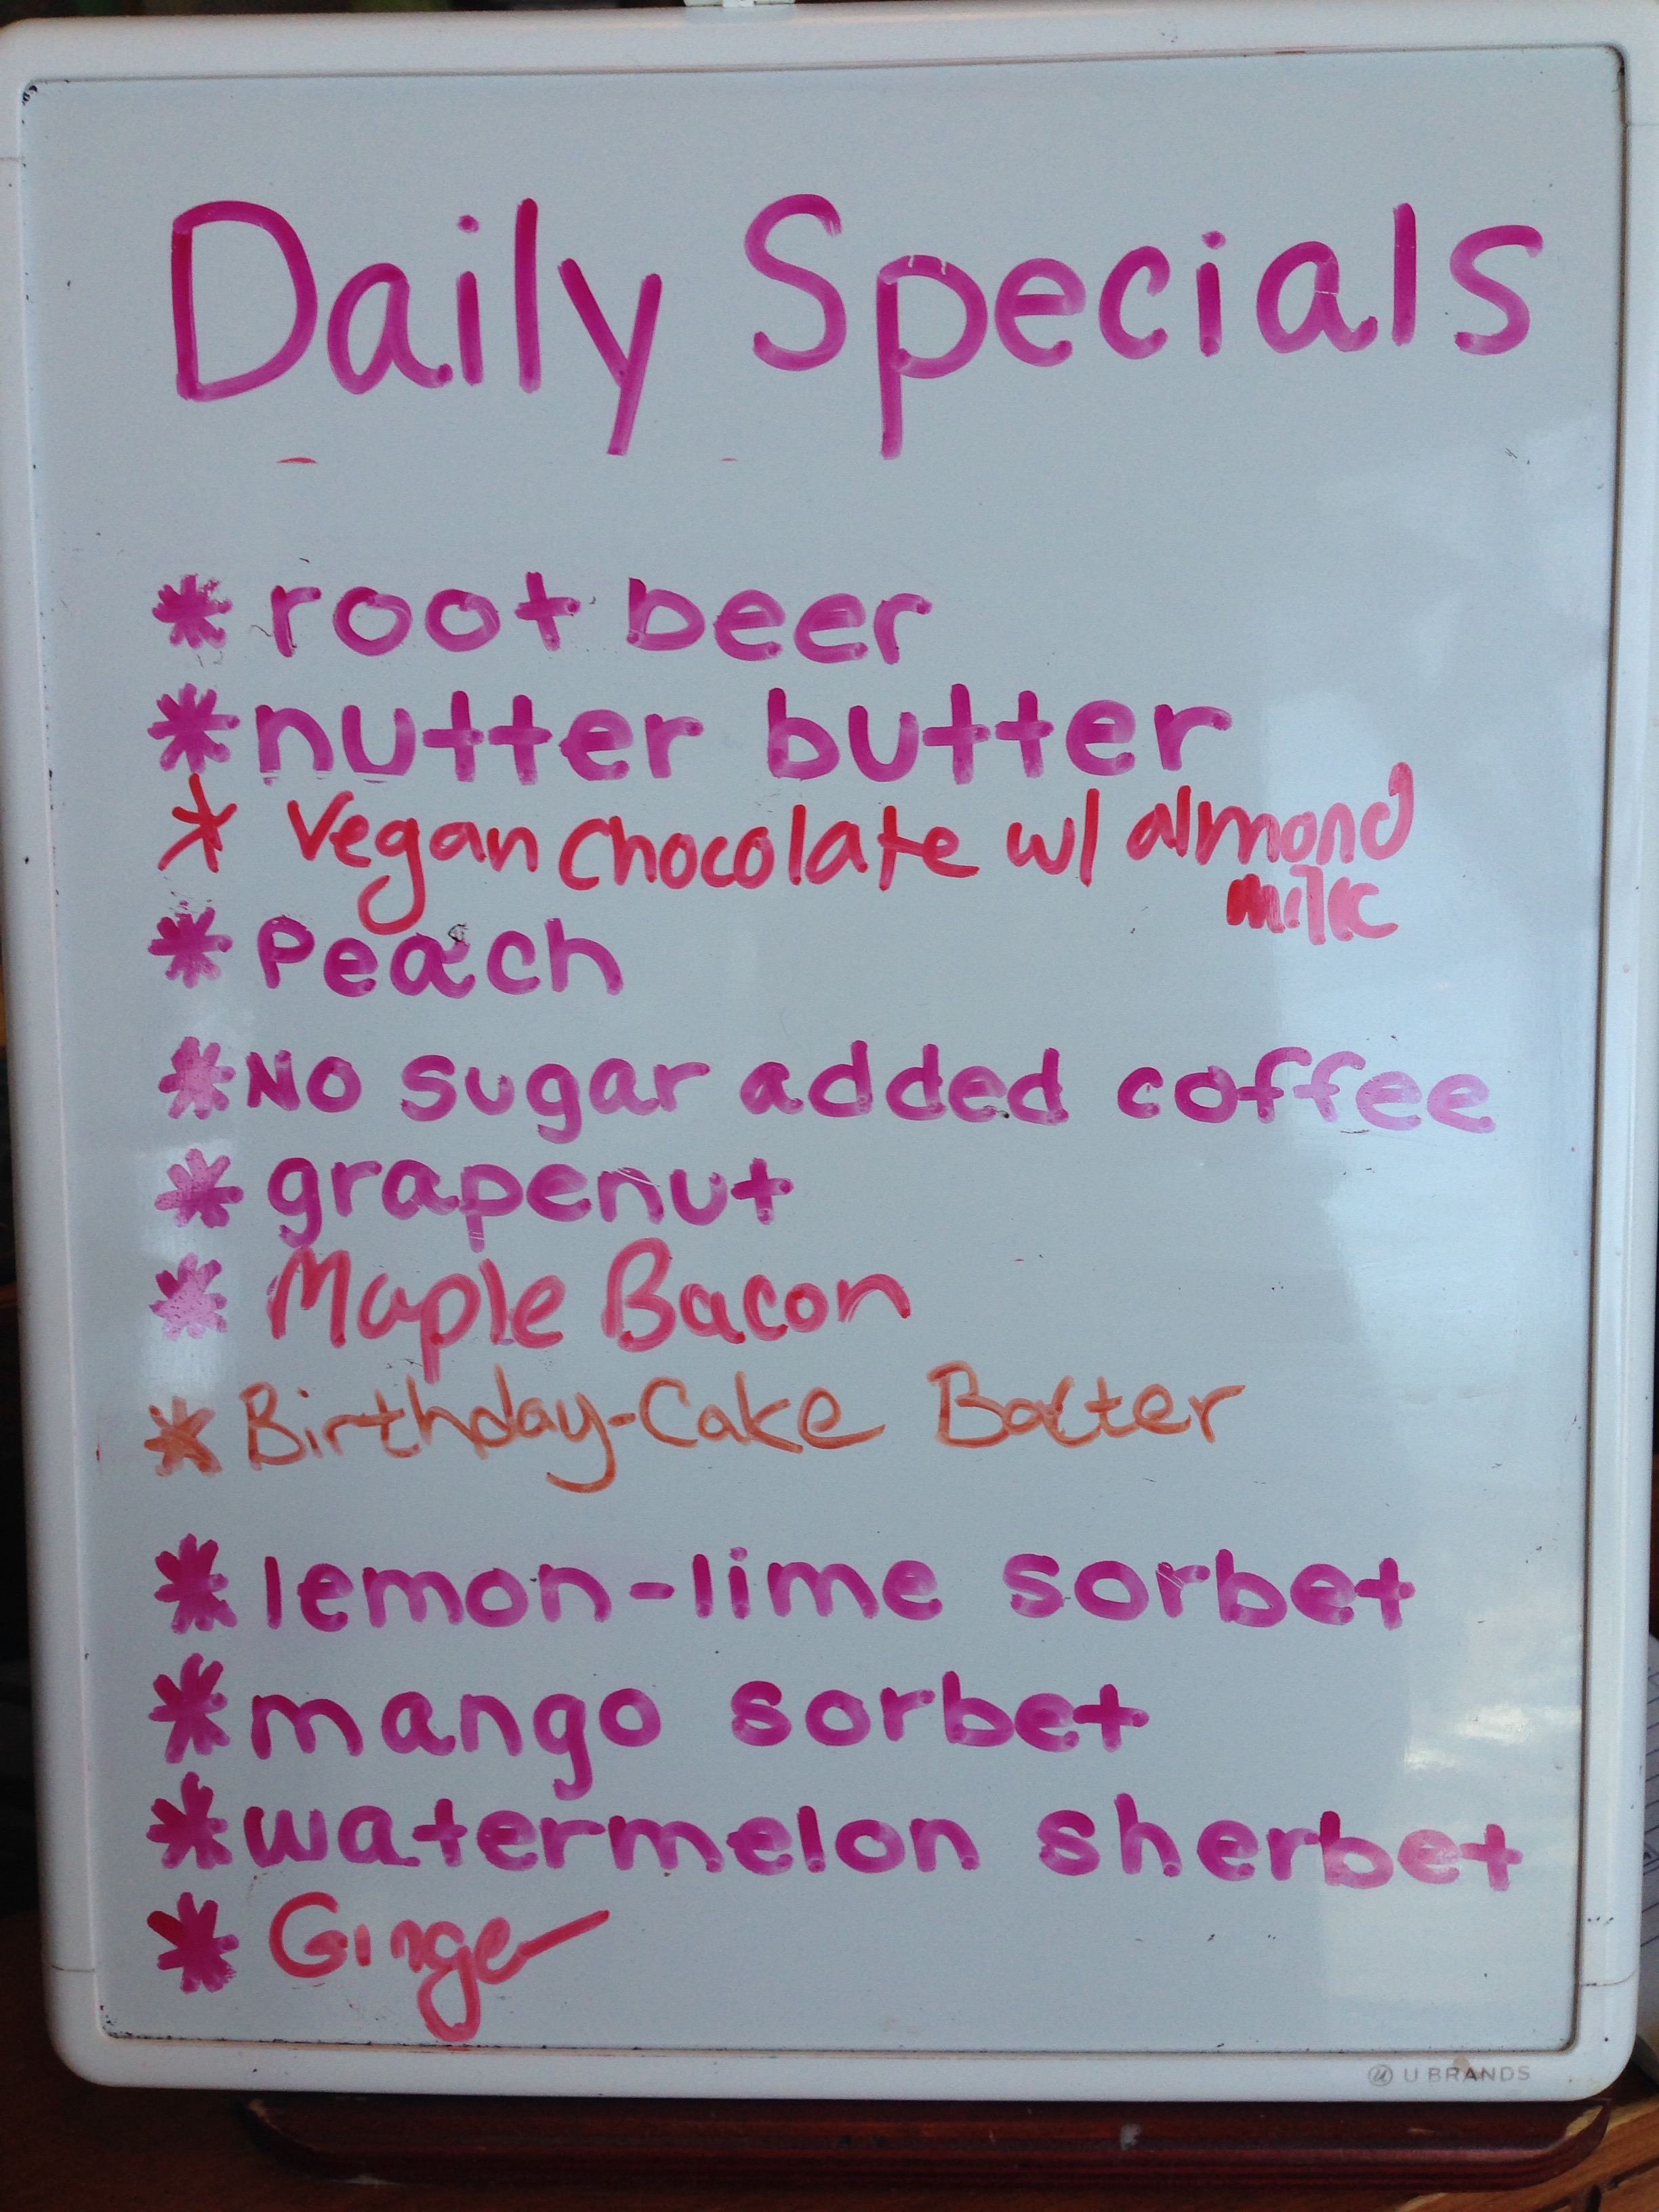 Daily Specials
* root beer
* nutter butter
* Vegan Chocolate w/ almond
milk
* Peach
* No sugar added coffee
* grapenut
* Maple Bacon
* Birthday-Cake Batter
* lemon-lime sorbet
* mango sorbet
* watermelon sherbet
* Ginger
U BRANDS